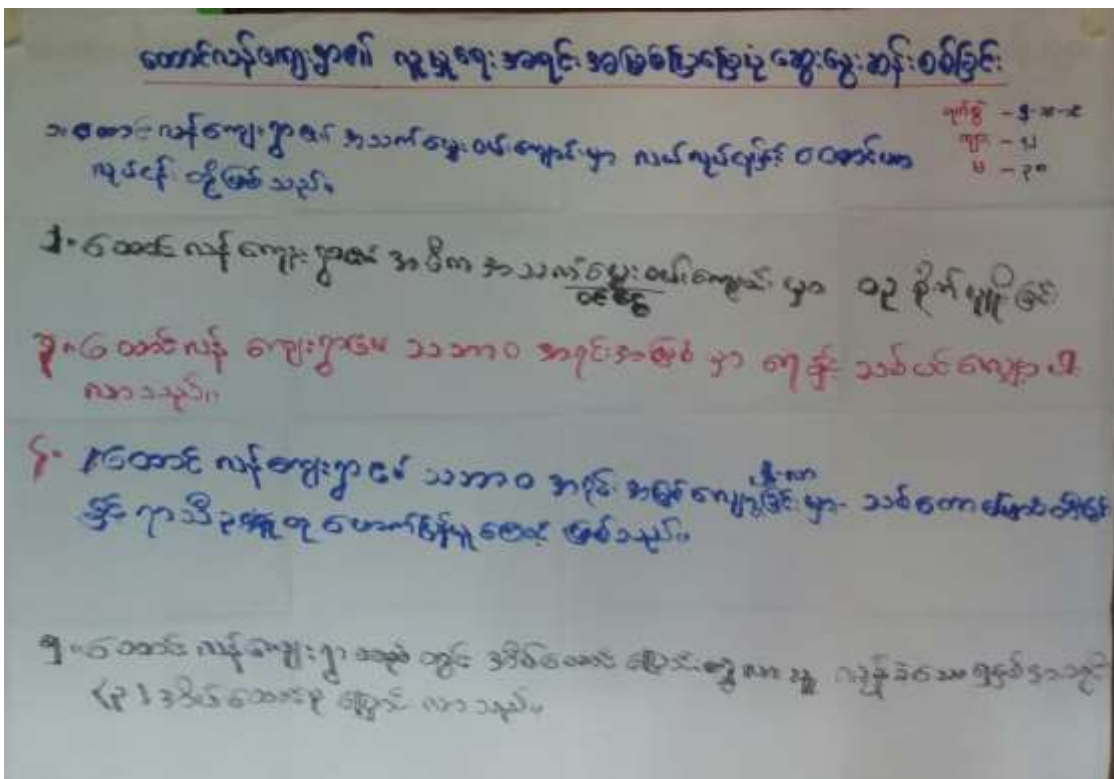 တောင်လန်ကျေးရွာ၏ လူမှုရေးအရင်းအမြစ်ပြခြေပုံ ဆွေးနွေးဆန်းစစ်ခြင်း
ရက်စွဲ - ၅-၁၀-၁၄
ကျား - ၅၂
မ - ၃၈
၁။ တောင်လန်ကျေးရွာ၏ အသက်မွေးဝမ်းကျောင်းမှာ လယ်လုပ်ငန်းနှင့် တောင်ယာ
လုပ်ငန်း တို့ဖြစ်သည်။
၂။ တောင်လန်ကျေးရွာ၏ အဓိက အသက်မွေးဝမ်းကျောင်း မှာ ဥ စိုက်ပျိုးခြင်း
ဝင်ငွေ
၃။ တောင်လန် ကျေးရွာမှ သဘာဝ အရင်းအမြစ် မှာ ရေ နှင့် သစ်ပင်လျော့ပါး
လာသည်။
၄။ တောင်လန်ကျေးရွာ၏ သဘာဝ အရင်းအမြစ်လျော့ပါးလာခြင်းမှာ သစ်တော
နှင့် ရာသီဥတု ဖောက်ပြန်မှုကြောင့် ဖြစ်သည်။
၅။ တောင်လန်ကျေးရွာသည် တွင် အိမ်ထောင် ပြောင်းရွှေ့လာသူ လွန်ခဲ့သော ၅နှစ်အတွင်း
(၃) အိမ်ထောင်စု ပြောင်းလာသည်။